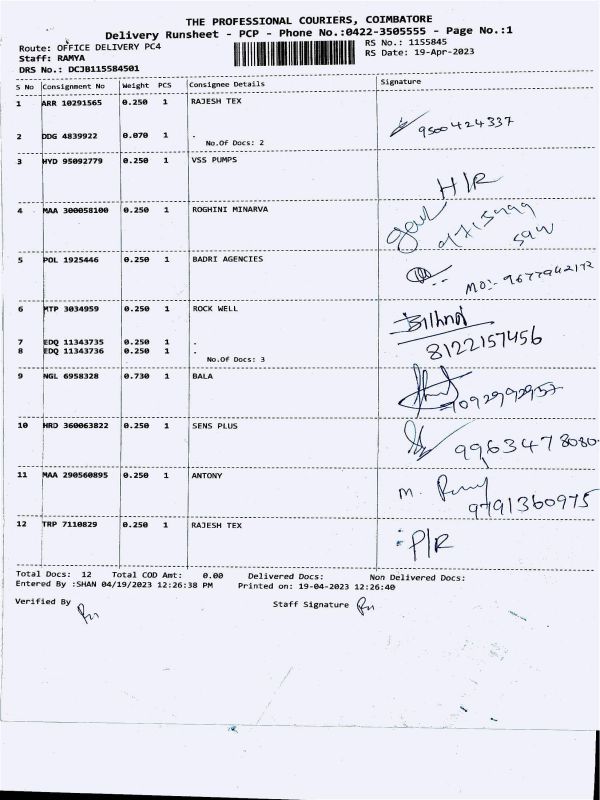 THE PROFESSIONAL COURIERS, COIMBATORE
Delivery Runsheet - PCP - Phone No.:0422-3505555 - Page No.:1
Route: OFFICE DELIVERY PC4 RS No.: 1155845
Staff: RAMYA RS Date: 19-Apr-2023
DRS No.: DCJB115584501
S No Consignment No Weight PCS Consignee Details Signature
1 ARR 10291565 0.250 1 RAJESH TEX
9500424337
2 DDG 4839922 0.070 1 .
No.Of Docs: 2
3 HYD 95092779 0.250 1 VSS PUMPS
H/R
4 MAA 300058100 0.250 1 ROGHINI MINARVA
5 POL 1925446 0.250 1 BADRI AGENCIES
MO:- 9677942172
6 MTP 3034959 0.250 1 ROCK WELL
7 EDQ 11343735 0.250 1 .
8 EDQ 11343736 0.250 1 .
8122157456
No.Of Docs: 3
9 NGL 6958328 0.730 1 BALA
10 HRD 360063822 0.250 1 SENS PLUS
9963478080
11 MAA 290560895 0.250 1 ANTONY
M.
9791360975
12 TRP 7110829 0.250 1 RAJESH TEX
P/R
Total Docs: 12 Total COD Amt: 0.00 Delivered Docs: Non Delivered Docs:
Entered By :SHAN 04/19/2023 12:26:38 PM Printed on: 19-04-2023 12:26:40
Verified By Staff Signature